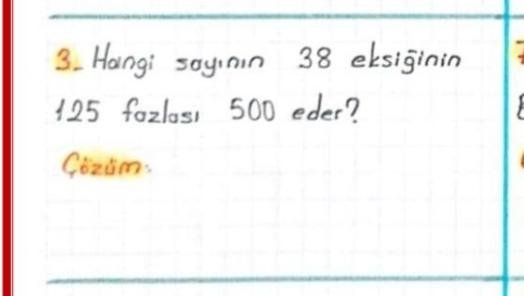 3- Hangi sayının 38 eksiğinin
125 fazlası 500 eder?
Çözüm: